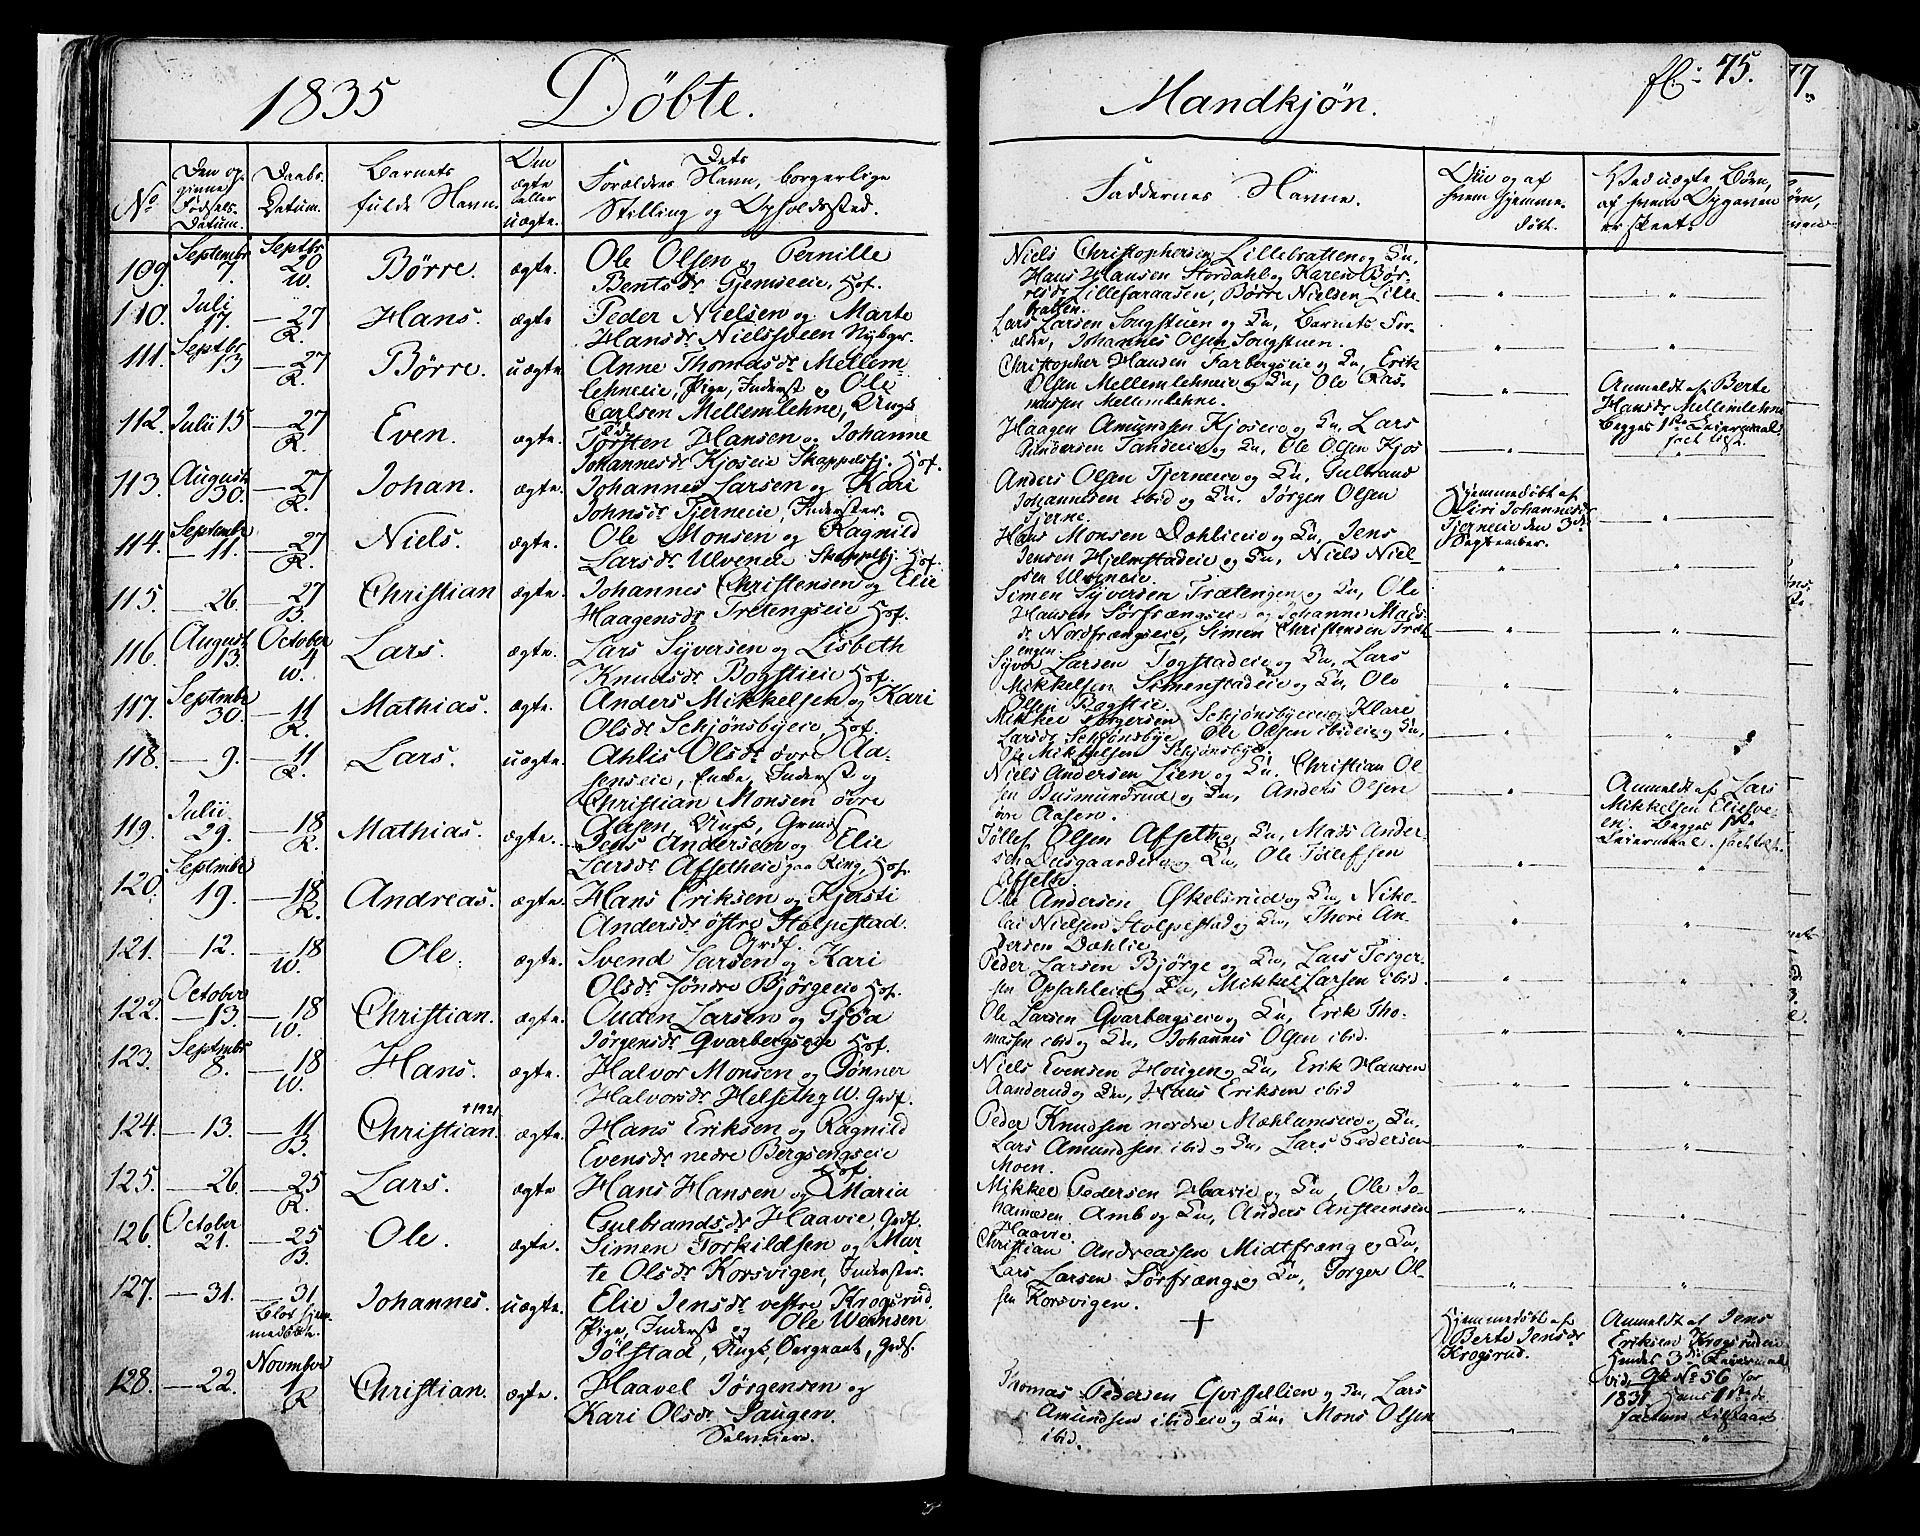 1835 Döbte.
Mandkjøn.
fl: 75.
77.
No
Den op-
givne
Födsels-
Datum.
Daabs-
Datum.
Barnets
fulde Navn.
Om
ægte
eller
uægte.
Dets
Forældres Navn, borgerlige
Stilling og Opholdssted.
Faddernes Navne.
Om og af
hvem hjemme-
döbt.
Ved uægte Börn,
af hvem Opgaven
er skeet.
109. Septembr 7. Septbr 20 W. Börre. ægte.
Ole Olsen og Pernille
Bentsdr Gjemseeie, Hof.
Niels Christophersen Lillebratten og Qu,
Hans Hansen Stordahl og Karen Bör-
resdr Lillefaraasen, Börre Nielsen Lille-
bratten.
110. Juli 17. — 27 R. Hans. ægte
Peder Nielsen og Marte
Hansdr Nielssveen Nybgr.
Lars Larsen Songstuen og Qu, Barnets For-
ældre, Johannes Olsen Songstuen.
111. Septbr 13 — 27 R. Börre. uægte.
Anne Thomasdr Mellem-
lehneeie, Pige, Inderst og Ole
Carlsen Mellemlehne, Ungk.
Christopher Hansen Farbergseie og Qu, Erik
Olsen Mellemlehneie og Qu, Ole Ras-
mussen Mellemlehne.
Anmeldt af Berte
Hansdr Mellemlehne
Begges 1ste Leiermaal
112. Julii 15 — 27 R. Even. ægte.
Torsten Hansen og Johanne
Johannesdr Kjoseie Skappelsj. Hof.
Haagen Amundsen Kjoseie og Qu, Lars
Gundersen Sandeeie og Qu, Ole Olsen Kjos
113. August 30. — 27 R. Johan. ægte.
Johannes Larsen og Kari
Johnsdr Tjerneeie, Inderster.
Anders Olsen Tjerneeie og Qu, Gulbrand
Johannesen ibid og Qu, Jörgen Olsen
Tjerne.
Hjemmedöbt af
Siri Johannesdr
Tjerneeie den 3de
September.
114. Septembr 11. — 27 R. Niels. ægte.
Ole Monsen og Ragnild
Larsdr Ulveneie Skappelsj. Hof.
Hans Monsen Dæhlieeie og Qu, Jens
Jensen Hjelmstadeie og Qu, Niels Niel-
sen Ulveneie.
115. — 26. — 27 B. Christian ægte.
Johannes Christensen og Elie
Haagensdr Tretengseie Hof.
Simen Syversen Trætengen og Qu, Ole
Hansen Sörfrængseie og Johanne Mads-
dr Nordfrængseie, Simen Christensen Træt-
engen.
116. August 13. October 4 W. Lars. ægte.
Lars Syversen og Lisbeth
Knudsdr Bogstieie Hof.
Syver Larsen Togstadeie og Qu, Lars
Mikkelsen Simenstadeie og Qu, Ole
Olsen Bogstie.
117. Septembr 30. — 11 R. Mathias. ægte.
Anders Mikkelsen og Kari
Olsdr Schjönsbyeie, Hof.
Mikkel Torgersen Schjönsbyeie og Klare
Larsdr Schjönsbye, Ole Olsen ibideie og Qu,
Ole Mikkelsen Schjönsbye.
118. — 9. — 11 R. Lars. uægte.
Ahlis Olsdr övre Aa-
senseie, Enke, Inderst og
Christian Monsen övre
Aasen, Ungk, Grmds.
Niels Andersen Lien og Qu, Christian Ol-
sen Rusmundrud og Qu, Anders Olsen
övre Aasen.
Anmeldt af Lars
Mikkelsen Elieve-
en. Begges 1ste
Leiermaal.
119. Julii 29. — 18 R. Mathias. ægte.
Jens Andersen og Elie
Larsdr Afsetheie paa Ring, Hof.
Tollef Olsen Afseth og Qu, Mads Ander-
sen Disgaardeie og Qu, Ole Tollefsen
Afseth.
120. Septembr 19. — 18 R. Andreas. ægte.
Hans Eriksen og Kjersti
Andersdr östre Holpestad.
Grdf.
Ole Andersen Økelsrud og Qu, Niko-
lai Nielsen Holpestad og Qu, Thore An-
dersen Dæhlie.
121. — 12. — 18 W. Ole. ægte.
Svend Larsen og Kari
Olsdr Söndre Björgeeie Hof.
Peder Larsen Björge og Qu, Lars Torger-
sen Opsahleie og Qu, Mikkel Larsen ibid.
122. October — 13. — 18 W. Christian. ægte.
Ouden Larsen og Gjöa
Jörgensdr Qvarbergseie Hof.
Ole Larsen Qvarbergseie og Qu, Erik Tho-
massen ibid og Qu, Johannes Olsen ibid.
123. Septembr 8. — 18 W. Hans. ægte.
Halvor Monsen og Sönner
Halvorsdr Helseth y W. Grdf.
Niels Evensen Hougen og Qu, Erik Hansen
Aanderud og Qu, Hans Eriksen ibid
124. — 13. — 11 B. Christian. † 1921 ægte.
Hans Eriksen og Ragnild
Evensdr nedre Bergsengseie
Hof.
Peder Knudsen nordre Mæhlumseie og Qu,
Lars Amundsen ibid og Qu, Lars Pedersen
Moen.
125. — 26. — 25 R. Lars. ægte
Hans Hansen og Maria
Gulbrandsdr Haavie, Grdf.
Mikkel Pedersen Haavie og Qu, Ole Jo-
hannesen Amb og Qu, Anders Anstensen
Haavie.
126. October 21. — 25 B. Ole. ægte.
Simen Torkildsen og Mar-
te Olsdr Korsvigen, Inderster.
Christian Andreassen Midtfræng og Qu,
Lars Larsen Sörfræng og Qu, Torger Ol-
sen Korsvigen.
127. — 31. — 31. Blot hjem-
medöbt. Johannes. uægte.
Elie Jensdr vestre Krogsrud.
Pige, Inderst og Ole Wennsen
Jölstad, Ungk, Sergeant, Grds.
+
Hjemmedöbt af
Berte Jensdr
Krogsrud.
Anmeldt af Jens
Eriksen Krogsrudeie
Hendes 3die Leiermaal
vid. No 56 for
1831. Hans 1ste do
128. — 22. Novembr 1 R Christian. ægte.
Haavel Jörgensen og
Kari Olsdr Haugen.
Selveiere.
Thomas Pedersen Qvissellien og Qu, Lars
Amundsen ibideie og Qu, Mons Olsen
ibid.